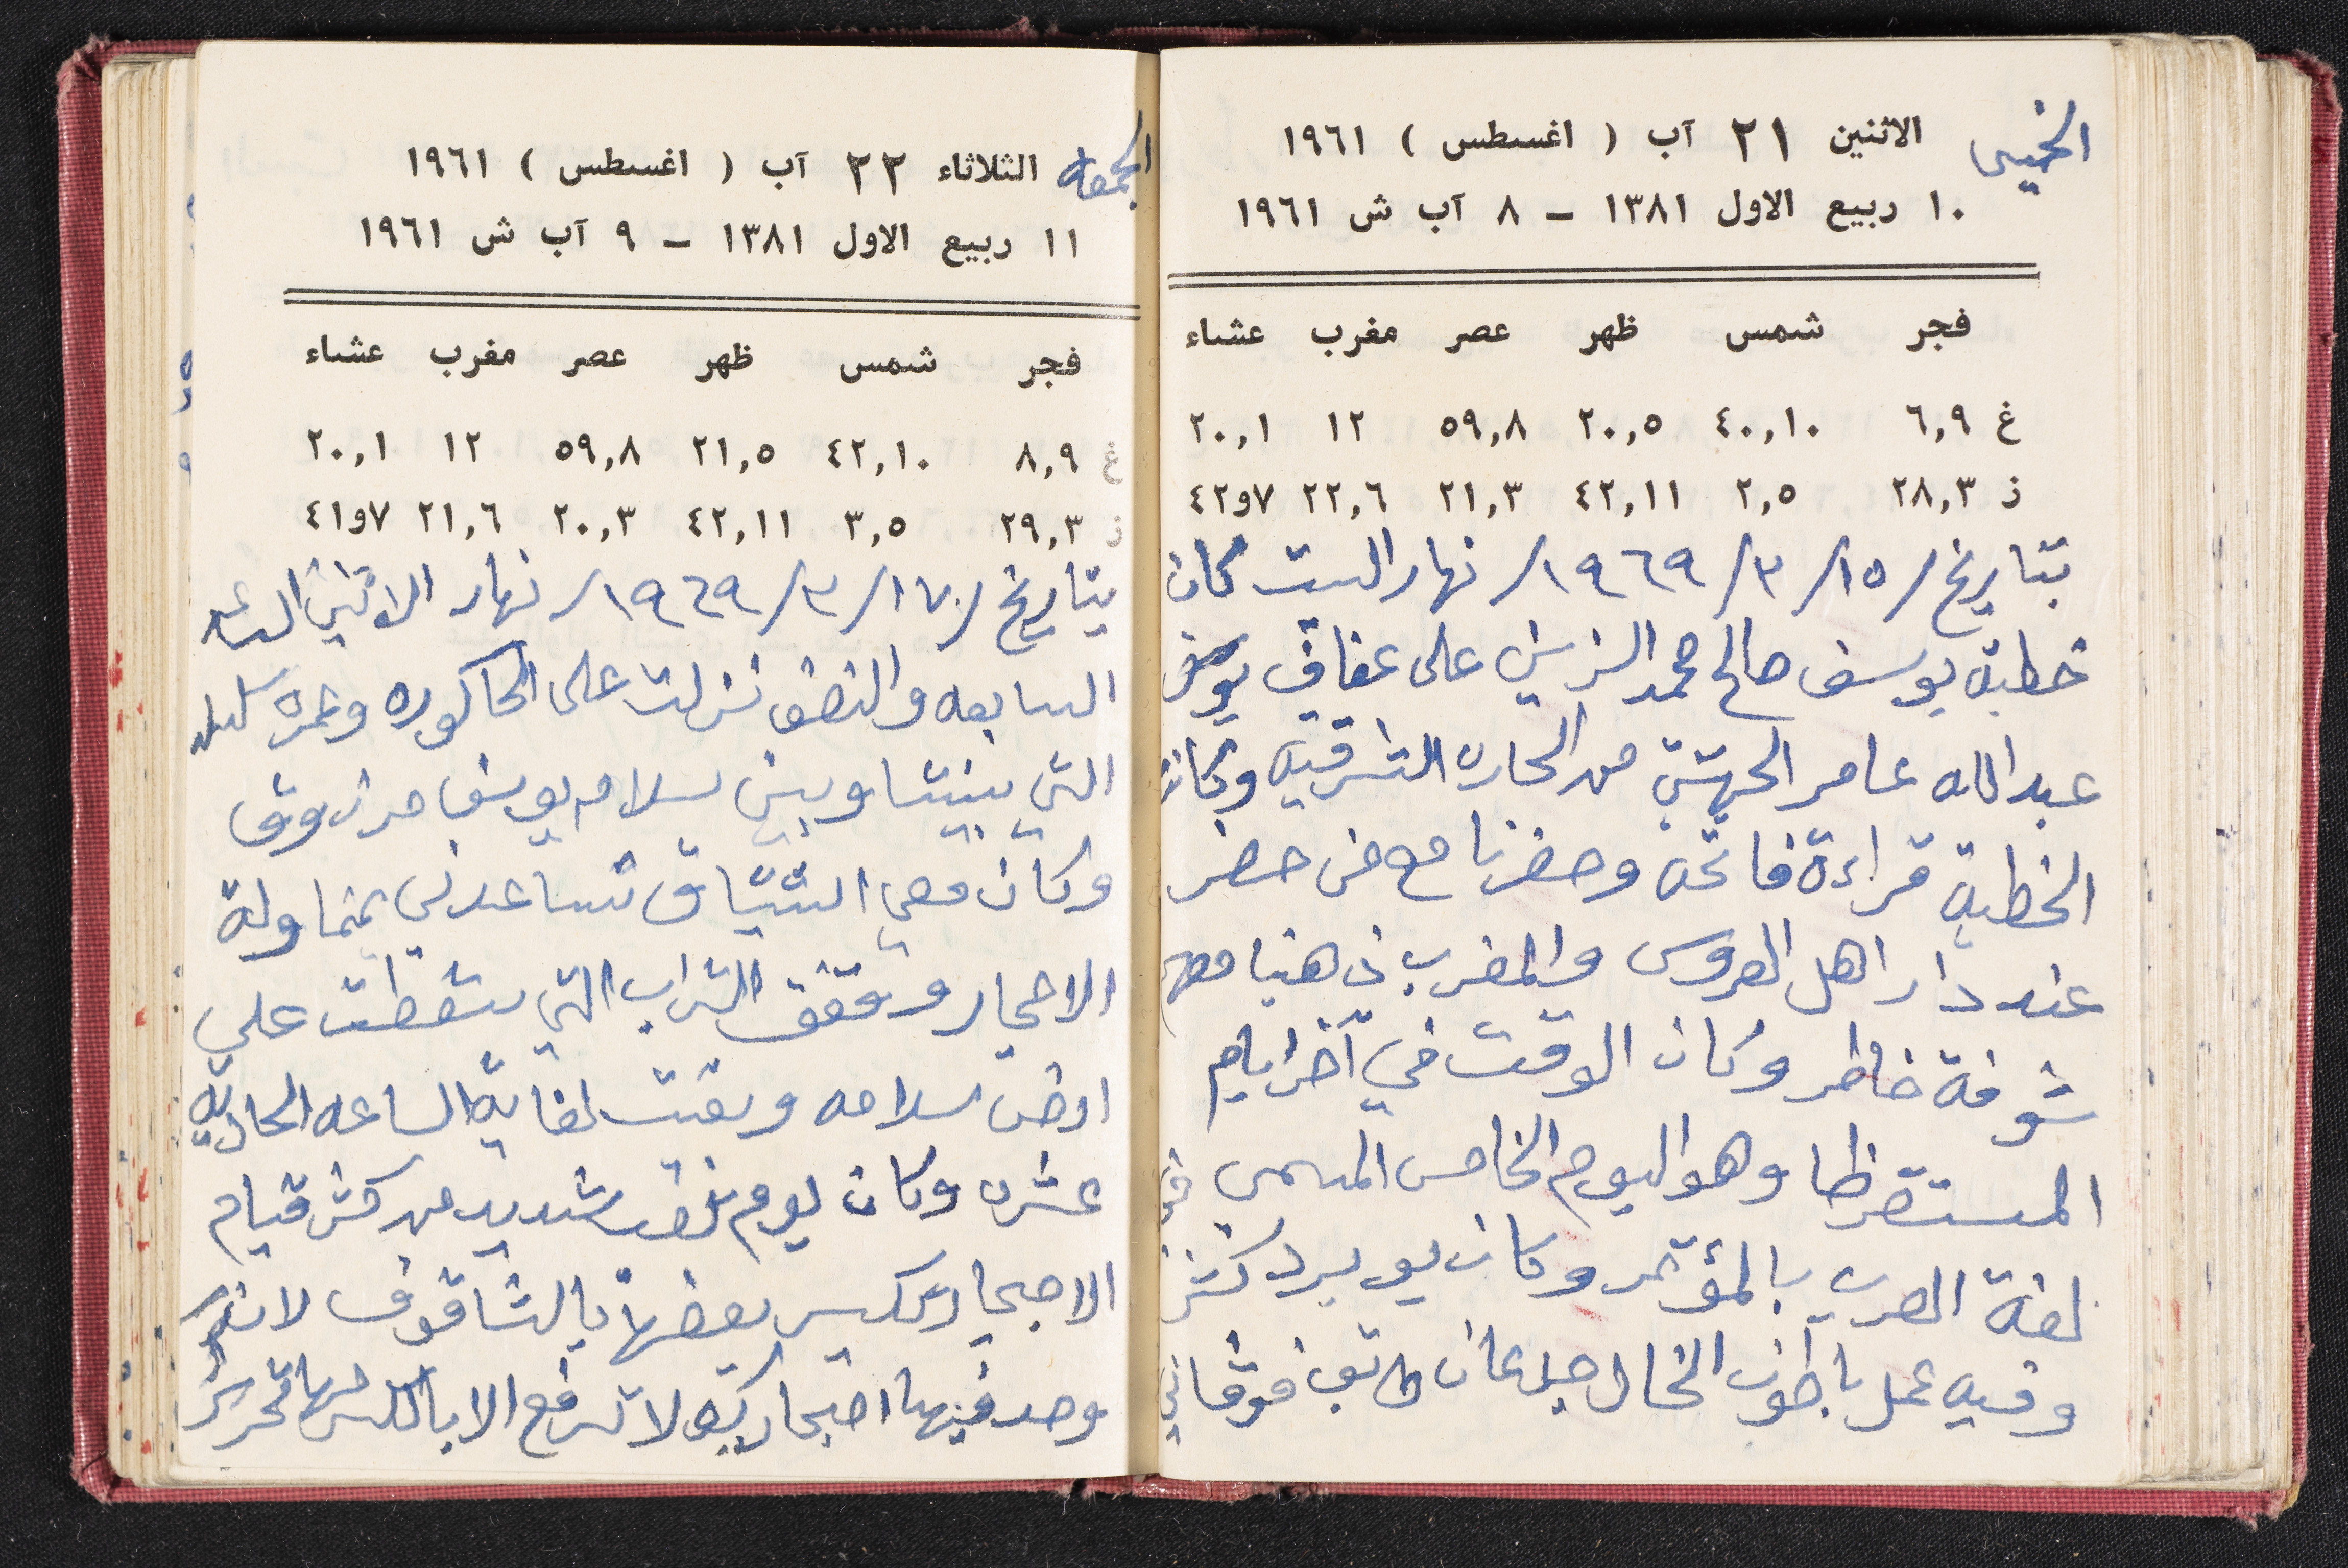 الخميس
الاثنين ٢١ آب ( اغسطس ) ١٩٦١
١٠ ربيع الاول ١٣٨١ – ٨ آب ش ١٩٦١
فجر شمس ظهر عصر مغرب عشاء
غ ٦,٩ ٤٠,١٠ ٢٠,٥ ٥٩,٨ ١٢ ٢٠,١
ز ٢٨,٣ ٢,٥ ٤٢,١١ ٢١,٣ ٢٢,٦ ٤٢و٧
بتاريخ /١٥/ ٣/ ١٩٦٩/ نهار السبت كان
خطبة يوسف صالح محمد الزبن على عفاف يوسف
عبدالله عامر من الحاره الشرقيه وكانت
الخطبه قراءة فاتحه وحضرنا مع من حضر
عند دار اهل العروس والمغرب ذهبنا معهم
شوفة خاطر وكان الوقت في آخر ايام
المستقرظا وهو اليوم الخامس المسمى في
لغة العرب بالمؤتمر وكان يو برد كثير
وفيه عمل باطون الخال فوقاني
الجمعه
الثلاثاء ٢٢ آب ( اغسطس ) ١٩٦١
١١ ربيع الاول ١٣٨١ – ٩ آب ش ١٩٦١
فجر شمس ظهر عصر مغرب عشاء
غ ٨,٩ ٤٢,١٠ ٢١,٥ ٥٩,٨ ١٢ ٢٠,١
ز ٢٩,٣ ٣,٥ ٤٢,١١ ٢٠,٣ ٢١,٦ ٤١و٧
بتاريخ /١٧/ ٣/ ١٩٦٩/ نهار الاثنين الساعه
السابعه والنصف نزلت على الحاكوره وعمره
التي بيننا وبين سلامه يوسف مرزوق
وكان معي اشتياق تساعدني بمناولة
الاحجار التراب التي سقطت على
ارض سلامه وبقيت لغاية الساعه الحاديه
عشره وكان يوم تعب شديد من كثر قيام
الاحجار وتكسير بعضها بالشاقوف لانه
يوجد فيها احجار كبيره لا ترفع الا